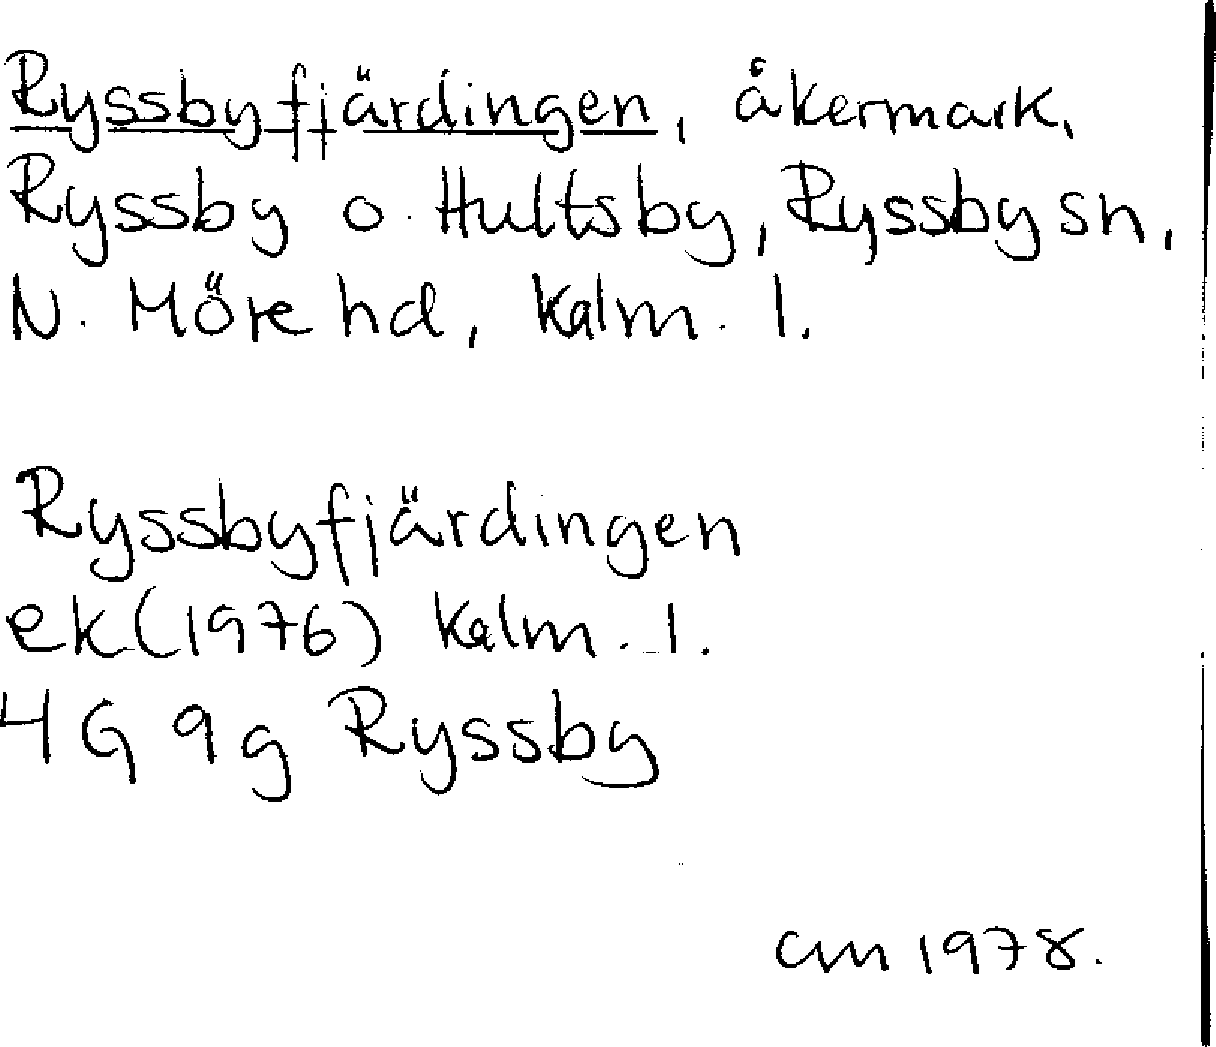 Ryssbyfjärdingen, åkermark,
Ryssby o. Hultsby, Ryssby sn,
N. Möre hd, Kalm. l.
Ryssbyfjärdingen
ek (1976) Kalm. l.
4G 9g Ryssby
CM 1978.